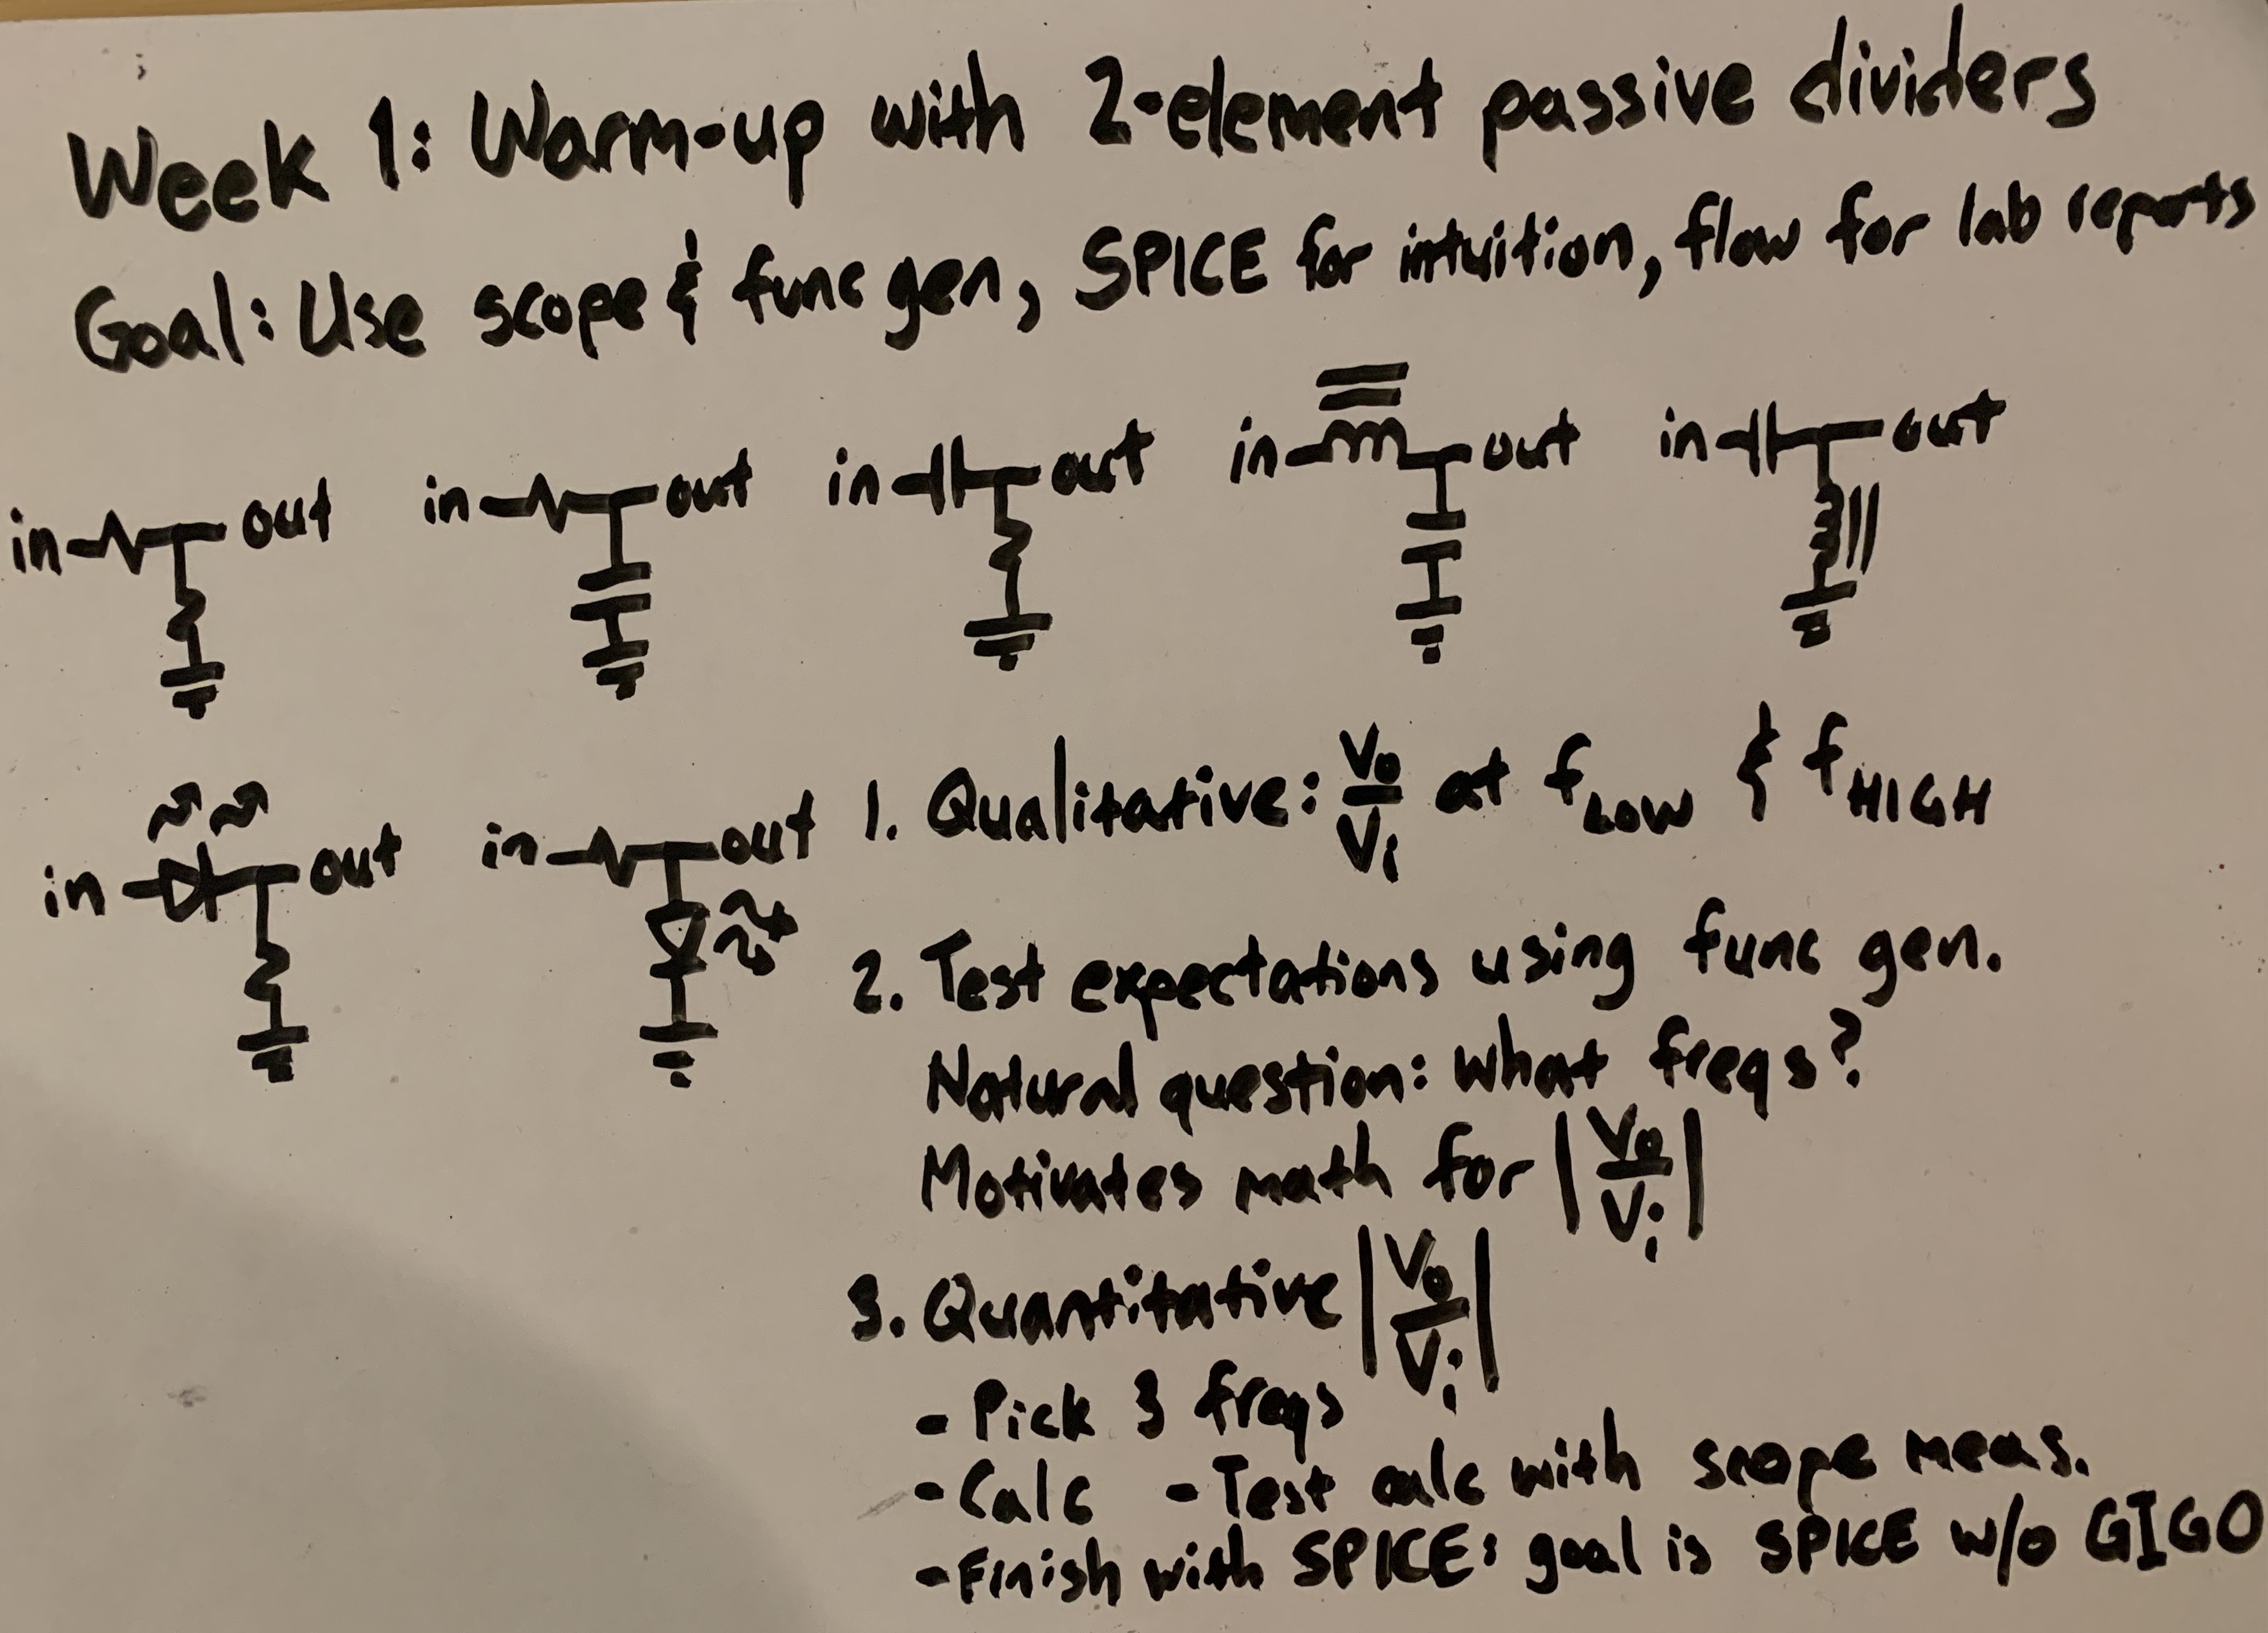 Week 1: Warm-up with 2-element passive dividers
Goal: Use scope & func gen, SPICE for intuition, flow for lab reports
in out in out in out in out in out
in out in out
1. Qualitative: Vo/Vi at fLOW & fHIGH
2. Test expectations using func gen.
Natural question: What freqs?
Motivates math for |Vo/Vi|
3. Quantitative |Vo/Vi|
- Pick 3 freqs
- Calc - Test calc with scope meas.
- Finish with SPICE: goal is SPICE w/o GIGO